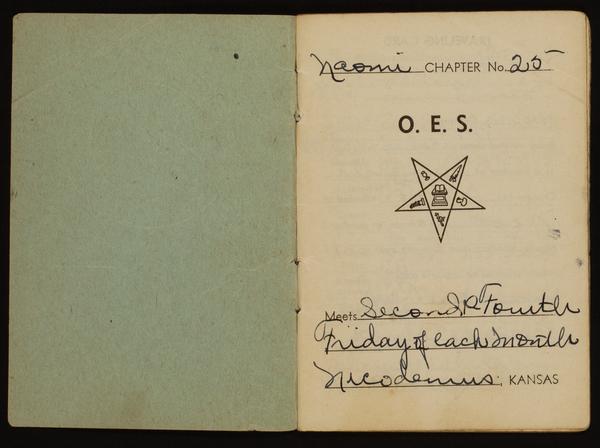 Naomi CHAPTER No. 25
O. E. S.
Meets Second & Fourth
Friday of each month
Nicodemus, KANSAS